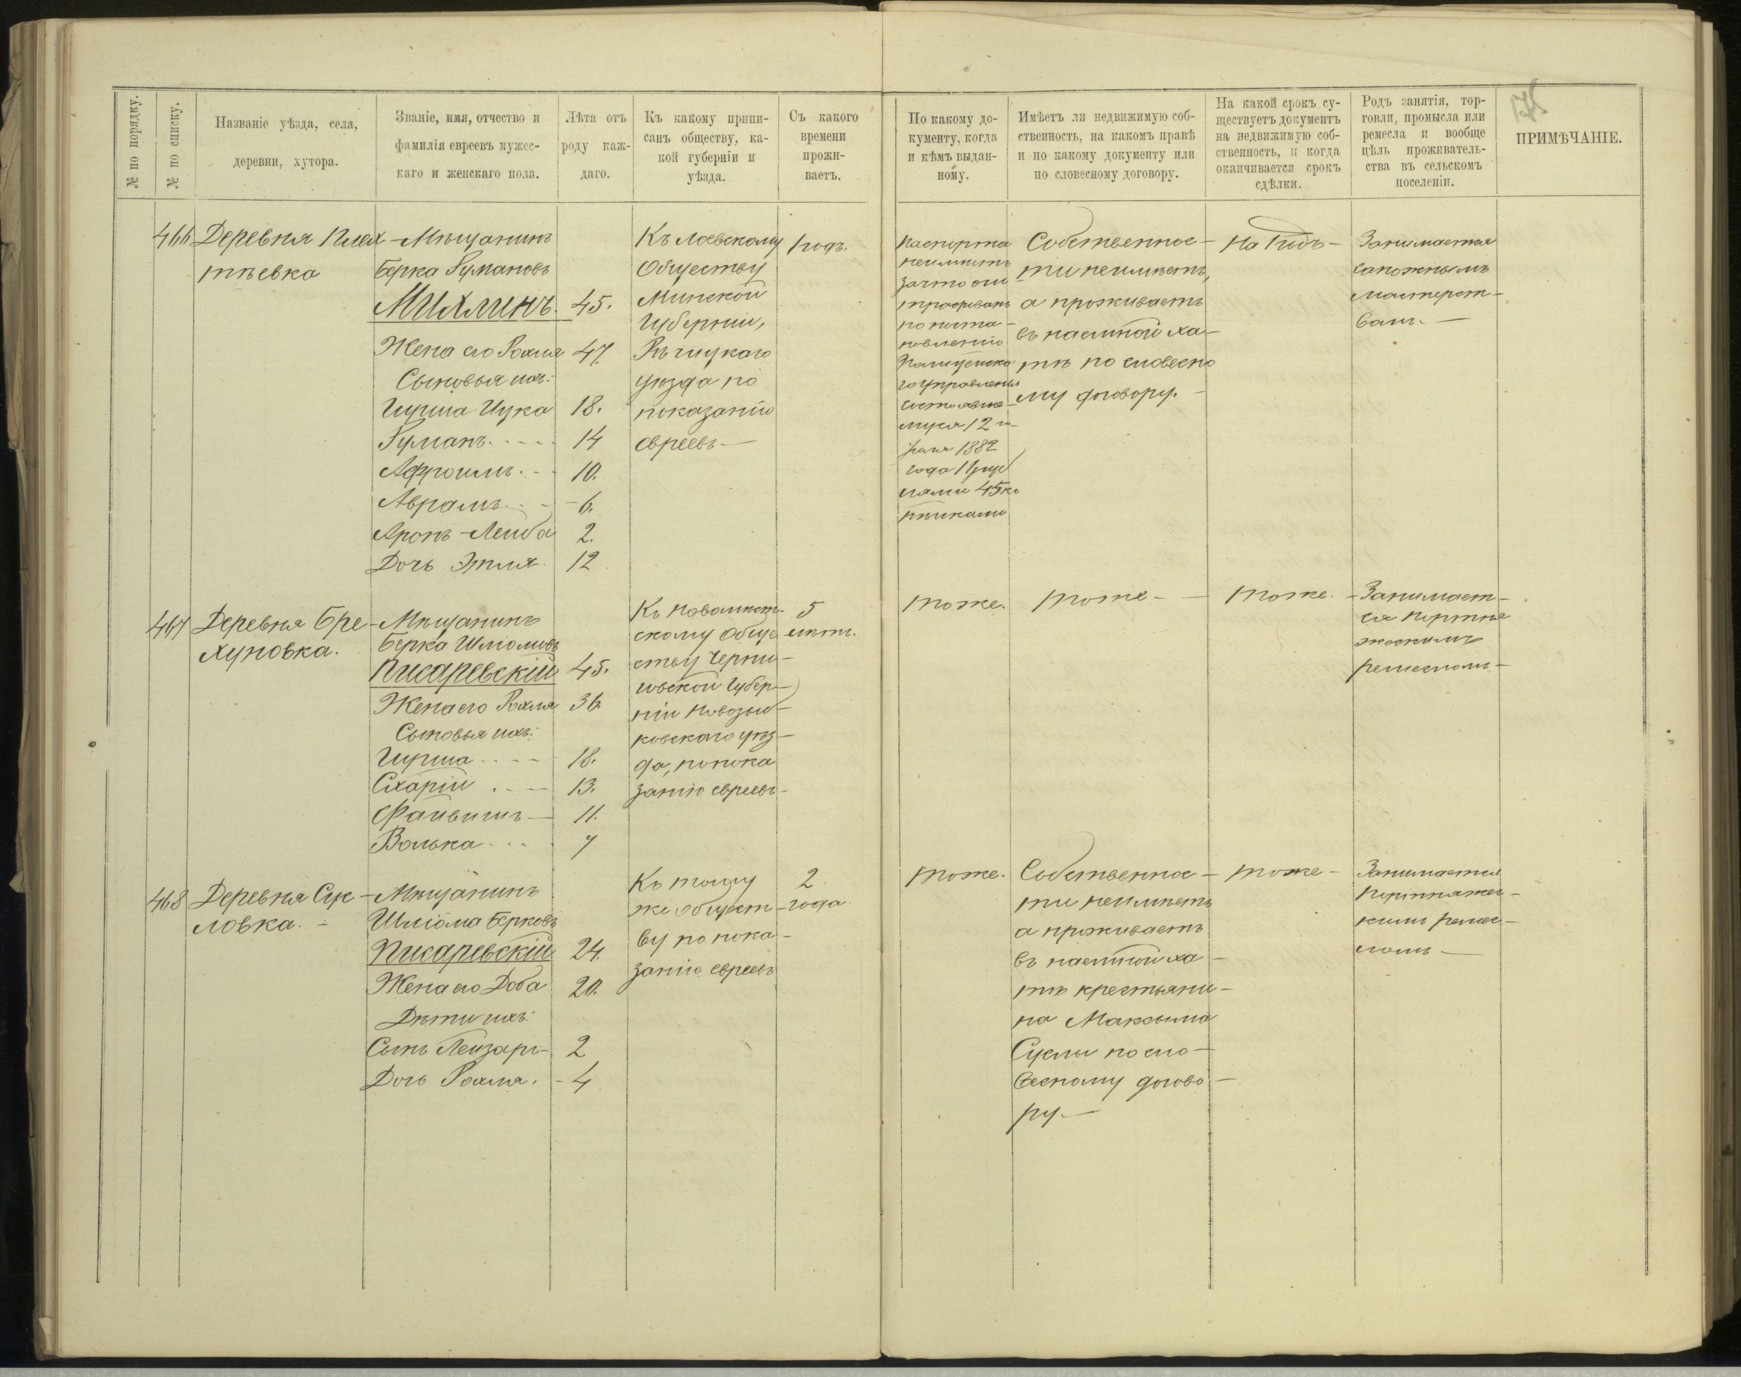 № по порядку.
№ по списку.
Названіе уѣзда, села,
деревни, хутора.
Званіе, имя, отчество и
фамилія евреевъ мужес-
каго и женскаго пола.
Лѣта отъ
роду каж-
даго.
Къ какому припи-
санъ обществу, ка-
кой губерніи и
уѣзда.
Съ какого
времени
прожи-
ваетъ.
По какому до-
кументу, когда
и кѣмъ выдан-
ному.
Имѣетъ ли недвижимую соб-
ственность, на какомъ правѣ
и по какому документу или
по словесному договору.
На какой срокъ су-
ществуетъ документъ
на недвижимую соб-
ственность, и когда
оканчивается срокъ
сдѣлки.
Родъ занятія, тор-
говли, промысла или
ремесла и вообще
цѣль проживатель-
ства въ сельскомъ
поселеніи.
ПРИМѢЧАНІЕ.
466
Деревня Плех
тѣевка
Мѣщанинъ
Берка Румановъ
Михлинъ 45.
Жена его Рохля 47
Сыновья ихъ:
Гирша Ицка 18.
Руманъ 14
Афроимъ 10.
Аврамъ 6.
Аронъ-Лейба 2.
Дочь Этля 12
Къ Лоевскому
Обществу
Минской
Губерніи,
Рѣчицкаго
уѣзда по
показанію
евреевъ
1 годъ.
Паспорта
неимѣетъ
зачто они
штрафованы
по поста-
новленію
Полицейска
го Управленія
состоявше-
муся 12 и
юля 1882
года 11 руб
лями 45 ко
пѣйками
Собственнос-
ти неимѣетъ,
а проживаетъ
въ наемной ха-
тѣ по словесно
му договору.
На годъ
Занимается
сапожнымъ
мастерст-
вомъ.
467
Деревня Бре
хуновка.
Мѣщанинъ
Берка Шліомивъ
Писаревскій 45.
Жена его Рохля 36
Сыновья ихъ:
Гирша 18.
Схарій 13.
Файвишъ 11.
Волька 7
Къ Новомѣст-
скому Обще
ству Черни-
говской Губер-
ніи Новозыб-
ковскаго уѣз-
да, по пока
занію евреевъ
5
лѣтъ.
тоже.
тоже
тоже.
Занимает-
ся портня
жескимъ
ремесломъ
468
Деревня Сук
ловка.
Мѣщанинъ
Шліома Берковъ
Писаревскій 24
Жена его Доба 20.
Дѣти ихъ:
Сынъ Лейзаръ 2
Дочь Рохля. 4
Къ тому
же общест-
ву по пока-
занію евреевъ
2
года
тоже.
Собственнос-
ти неимѣетъ
а проживаетъ
въ наемной ха-
тѣ крестьяни-
на Максыма
Суклы по сло-
весному догово
ру.
тоже
Занимается
Портняжес-
кимъ ремес-
ломъ